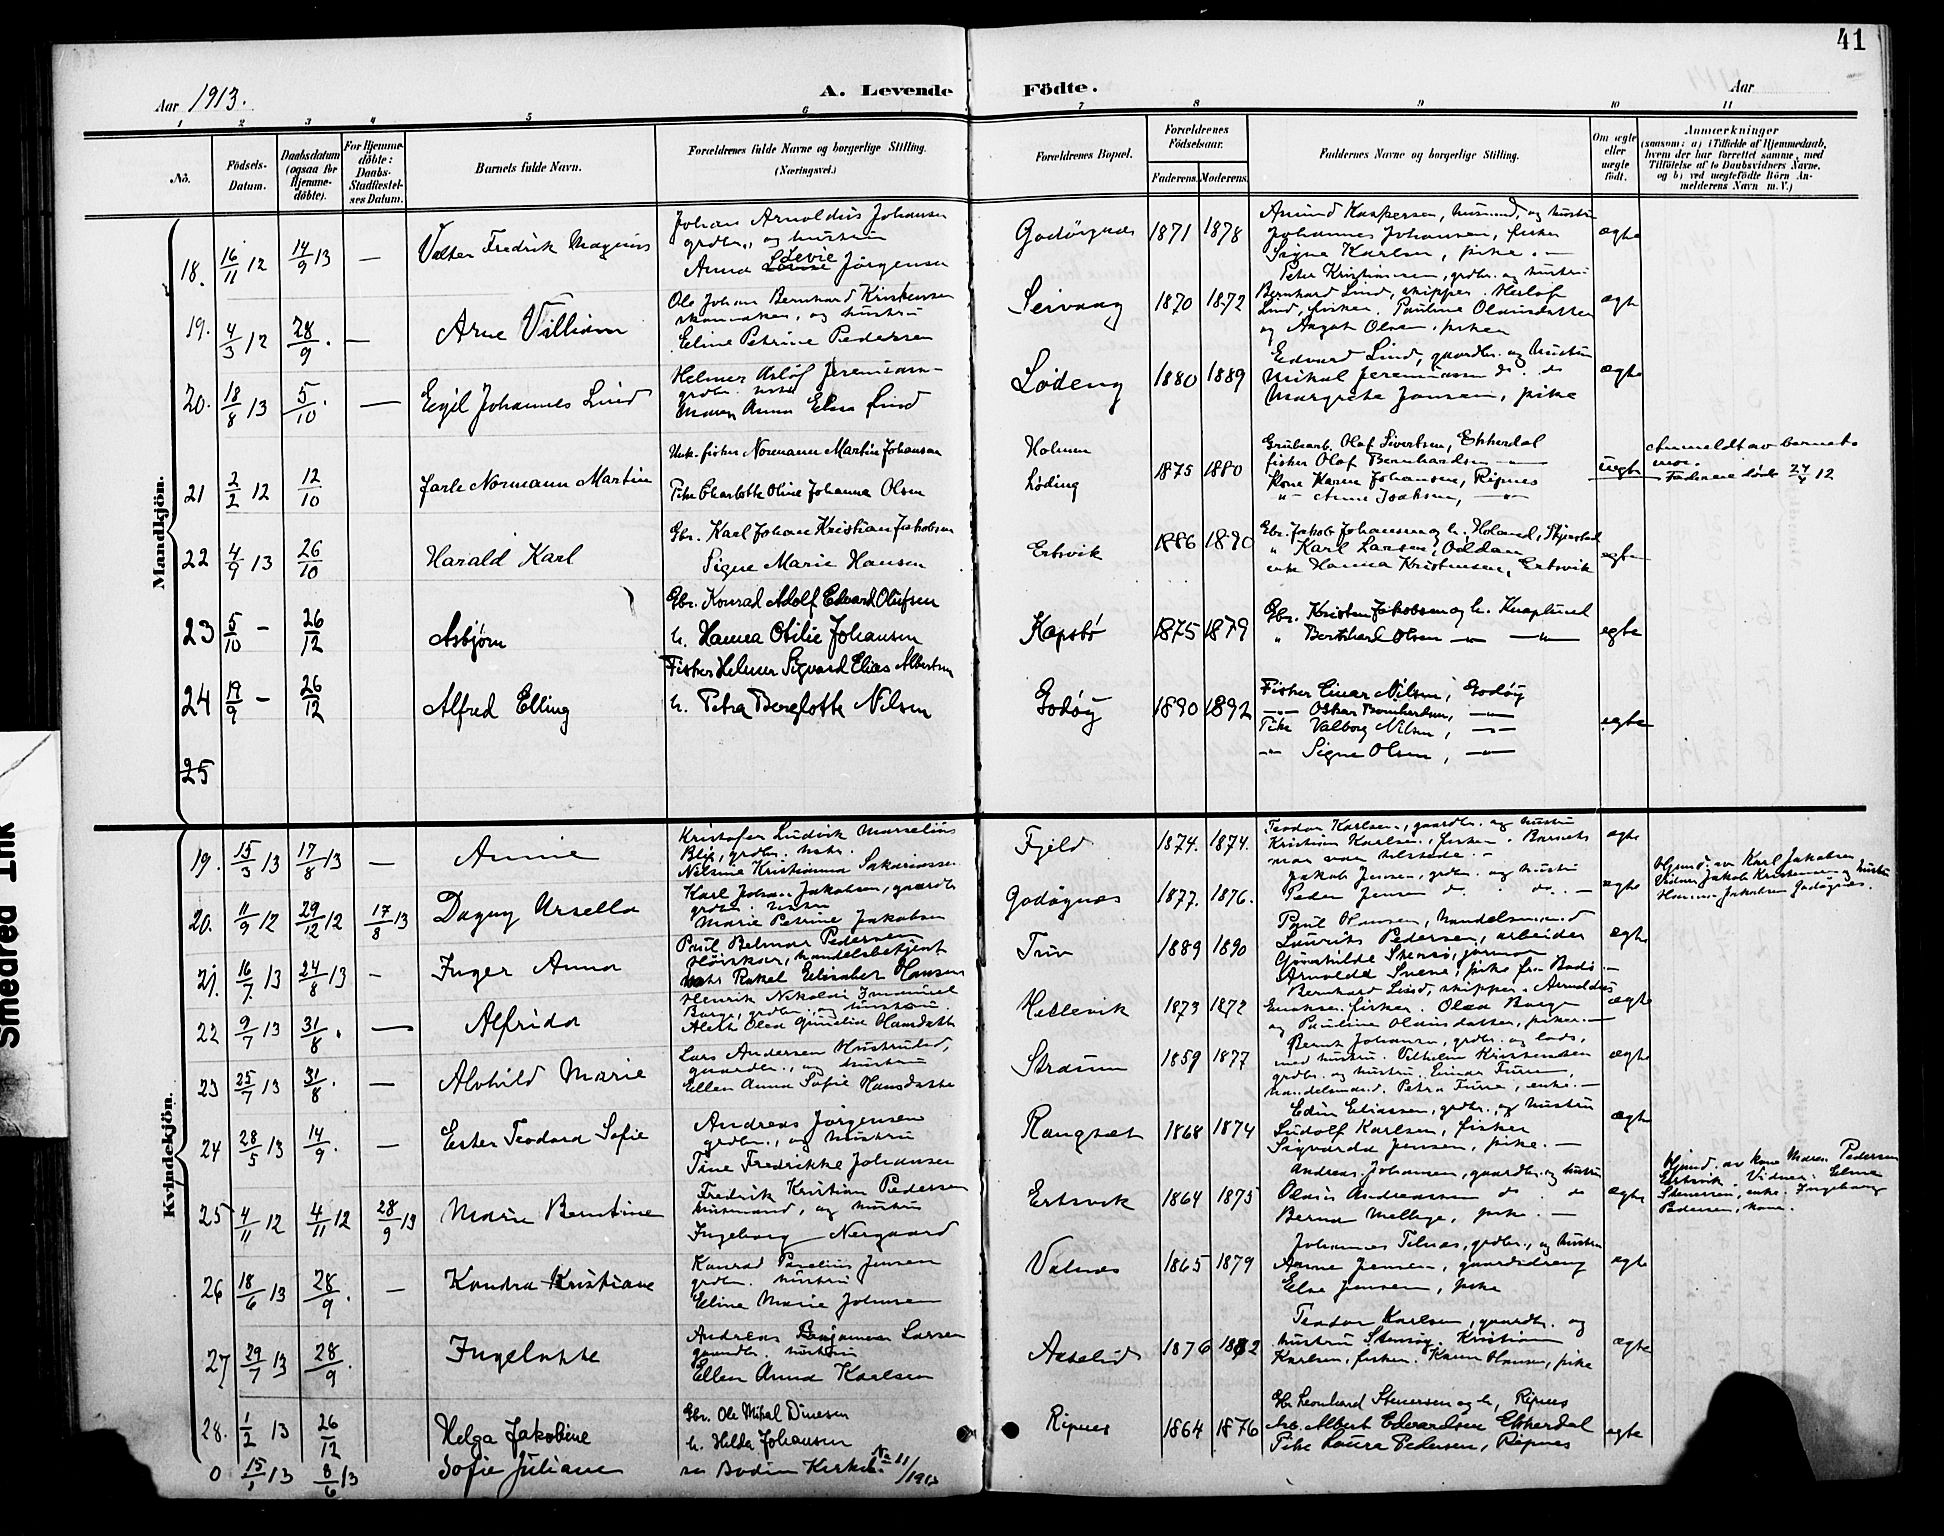 41
Aar 1913.
A. Levende Fødte.
Aar
1 2 3 4 5 6 7 8 9 10 11
No.
Fødsels-Datum.
Daabsdatum (ogsaa for Hjemmedøbte).
For Hjemmedøbte: Daabs-Stadfæstelses Datum.
Barnets fulde Navn.
Forældrenes fulde Navne og borgerlige Stilling. (Næringsvei.)
Forældrenes Bopæl.
Forældrenes Fødselsaar.
Faderens. Moderens.
Faddernes Navne og borgerlige Stilling.
Om ægte eller uægte født.
Anmærkninger (saasom: a) i Tilfælde af Hjemmedaab, hvem der har forrettet samme, med Tilføielse af to Daabsvidners Navne. og b) ved uægtefødte Børn Anmelderens Navn m. V.)
Mandkjön.
18. 16/11 12 14/9 13 — Valter Fredrik Magnus
Johan Arnoldus Johansen
grdbr., og hustru
Anna Levie Jørgensen
Godøynes 1871 1878
Amund Kaspersen, husmand, og hustru
Johannes Johansen, fisker
Signe Karlsen, pike. —
ægte
19. 4/3 12 28/9. — Arne Villiam
Ole Johan Bernhard Kristensen
skomaker, og hustru
Eline Petrine Pedersen
Seivaag 1870 1872
Peter Kristiansen, grdbr. og hustru
Bernhard Lind, skipper. Herlof
Lind, fisker. Pauline Olausdatter
og Aagot Olsen, piker
ægte
20. 18/8 13 5/10. — Eigil Johannes Lind
Helmer Asløf Jeremiassen
grdbr. hustru
Maren Anna Elisa Lind
Lødeng 1880 1889
Edvard Lind, gaardbr. og hustru
Mikal Jeremiassen do. do
Margrete Jansen, pike
ægte
21 2/2 12 12/10 Jarle Normann Martin
Unk. fisker Normann Martin Johansen
Pike Charlotte Oline Johanna Olsen
Holmen
Løding
1875 1880
Grubearb. Olaf Sivertsen, Ekkerdal
fisker Olaf Bernhardsen —
Kone Karen Johansen, Ripnes
" Anne Isaksen, —
uegte
Anmeldt av barnets
mor.
Faderen døde 24/4 12
22 4/9 13 26/10 Harald Karl
Gbr. Karl Johan Kristian Jakobsen
Signe Marie Hansen
Ertsvik 1886 1890
Gbr. Jakob Johansen og h. Holand, Skjerstad
" Karl Larsen, Oddan
enke Hanna Kristensen, Ertsvik
egte
23 5/10 - 26/12 Asbjørn
Gbr. Konrad Adolf Edvard Olufsen
h. Hanna Otilie Johansen
Kapsbø 1875 1879
Gbr. Kristen Jakobsen og h. Knaplund
" Bernhard Olsen — —
egte
24 19/9 - 26/12 Alfred Elling
Fisker Helmer Sigvard Elias Albertsen
h. Petra Berglotte Nilsen
Godøy 1890 1892
Fisker Einar Nilsen, Godøy
— Oskar Bernhardsen, —
Pike Valborg Nilsen, —
— Signe Olsen, —
egte
25
Kvindekjön.
19. 15/3 13 17/8 13 — Annie
Kristofer Ludvik Marselius
Blix, grdbr. hstr.
Nilsine Kristianna Sakariassen
Fjeld 1874. 1874.
Teodor Karlsen, gaardbr. og hustru
Kristian Karlsen, fisker. Barnets
mor var tilstede. —
ægte
20. 11/9 12 29/12 12 17/8 13 Dagny Arsella
Karl Johan Jakobsen, gaardbr
grdbr. hustru
Marie Petrine Jakobsen
Godøynes 1877. 1876.
Jakob Jensen, grdbr. og hustru
Peder Jensen do. do. —
ægte
Hjemd. av Karl Jakobsen
Vidner Jakob Kristensen og hustru
Hanna Jakobsen Godøynes.
21. 16/7 13 24/8 13 — Inger Anna
Paul Belmar Pedersen
Høiskar, handelsbetjent
hstr. Rakel Elisabet Hansen
Tuv 1889 1890
Paul Hansen, handelsmand
Laurits Pedersen, arbeider
Gunhilde Stensø, jormor
Arnolda Svene, pike fra Bodø —
ægte
22 9/7 13 31/8. — Alfrida
Henrik Nikolai Immanuel
Borge, grdbr., og hustru.
Alette Olea Gurelia Hansdatter
Hellevik 1873 1872
Bernhard Lind, skipper. Arnoldus
Eriksen fisker. Olea Borge
og Pauline Olausdatter, piker. —
ægte
23 25/7 13 31/8. — Alvhild Marie
Lars Andersen Hustrulid,
gaardbr., og hustru
Ellen Anna Sofie Hansdatter
Straum 1859 1877
Bernt Johansen, grdbr. og lods,
med hustru. Vilhelm Kristensen
grdbr. og hustru. Einar Furre,
handelsmand. Petra Furre, enke. —
ægte
24 28/5 13 14/9. — Ester Teodora Sofie
Andreas Jørgensen
grdbr., og hustru
Tine Fredrikke Johansen
Rangsæt 1868 1874
Edin Eliassen, grdbr., og hustru
Ludolf Karlsen, fisker
Sigvarda Jensen, pike. —
ægte
25 4/11 12 4/11 12 28/9 13 Marie Berntine
Fredrik Kristian Pedersen
husmand, og hustru
Ingeborg Nergaard
Ertsvik 1864 1875
Andreas Johansen, gaardbr. og hustru
Olaus Andreassen do. do
Berna Mellige, pike. —
ægte
Hjemd. av kone Maren Pedersen
Ertsvik. Vidner: Elma
Stenersen, enke. Ingeborg
Pedersen, kone.
26 18/6 13 28/9. — Kondra Kristiane
Konrad Parelius Jensen
grdbr. hustru
Eline Marie Johnsen
Valnes 1865 1879
Johannes Tilnes, grdbr., og hustru
Arne Jensen, gaardsdreng
Else Jensen, pike
ægte
27 29/7 13 28/9. Ingelotte
Andreas Benjaminsen Larsen
gaardbr. hustru
Ellen Anna Karlsen
Aaselid 1876 1882
Teodor Karlsen, gaardbr. og
hustru Stensøy. Kristian
Karlsen, fisker. Karen Hansen, pike
ægte
28. 1/2 13 26/12 Helga Jakobine
Gbr. Ole Mikal Dinesen
h. Hilda Johansen
Ripnes 1864 1876
Gbr. Leonhard Stenersen og h, Ripnes
Arb. Albert Edvardsen Ekkerdal
Pike Laura Pedersen, Ripnes
egte
0 15/1 13 8/6 13 Sofie Juliane
se Bodin Kirkeb. No 11/1913
Smedred Ink